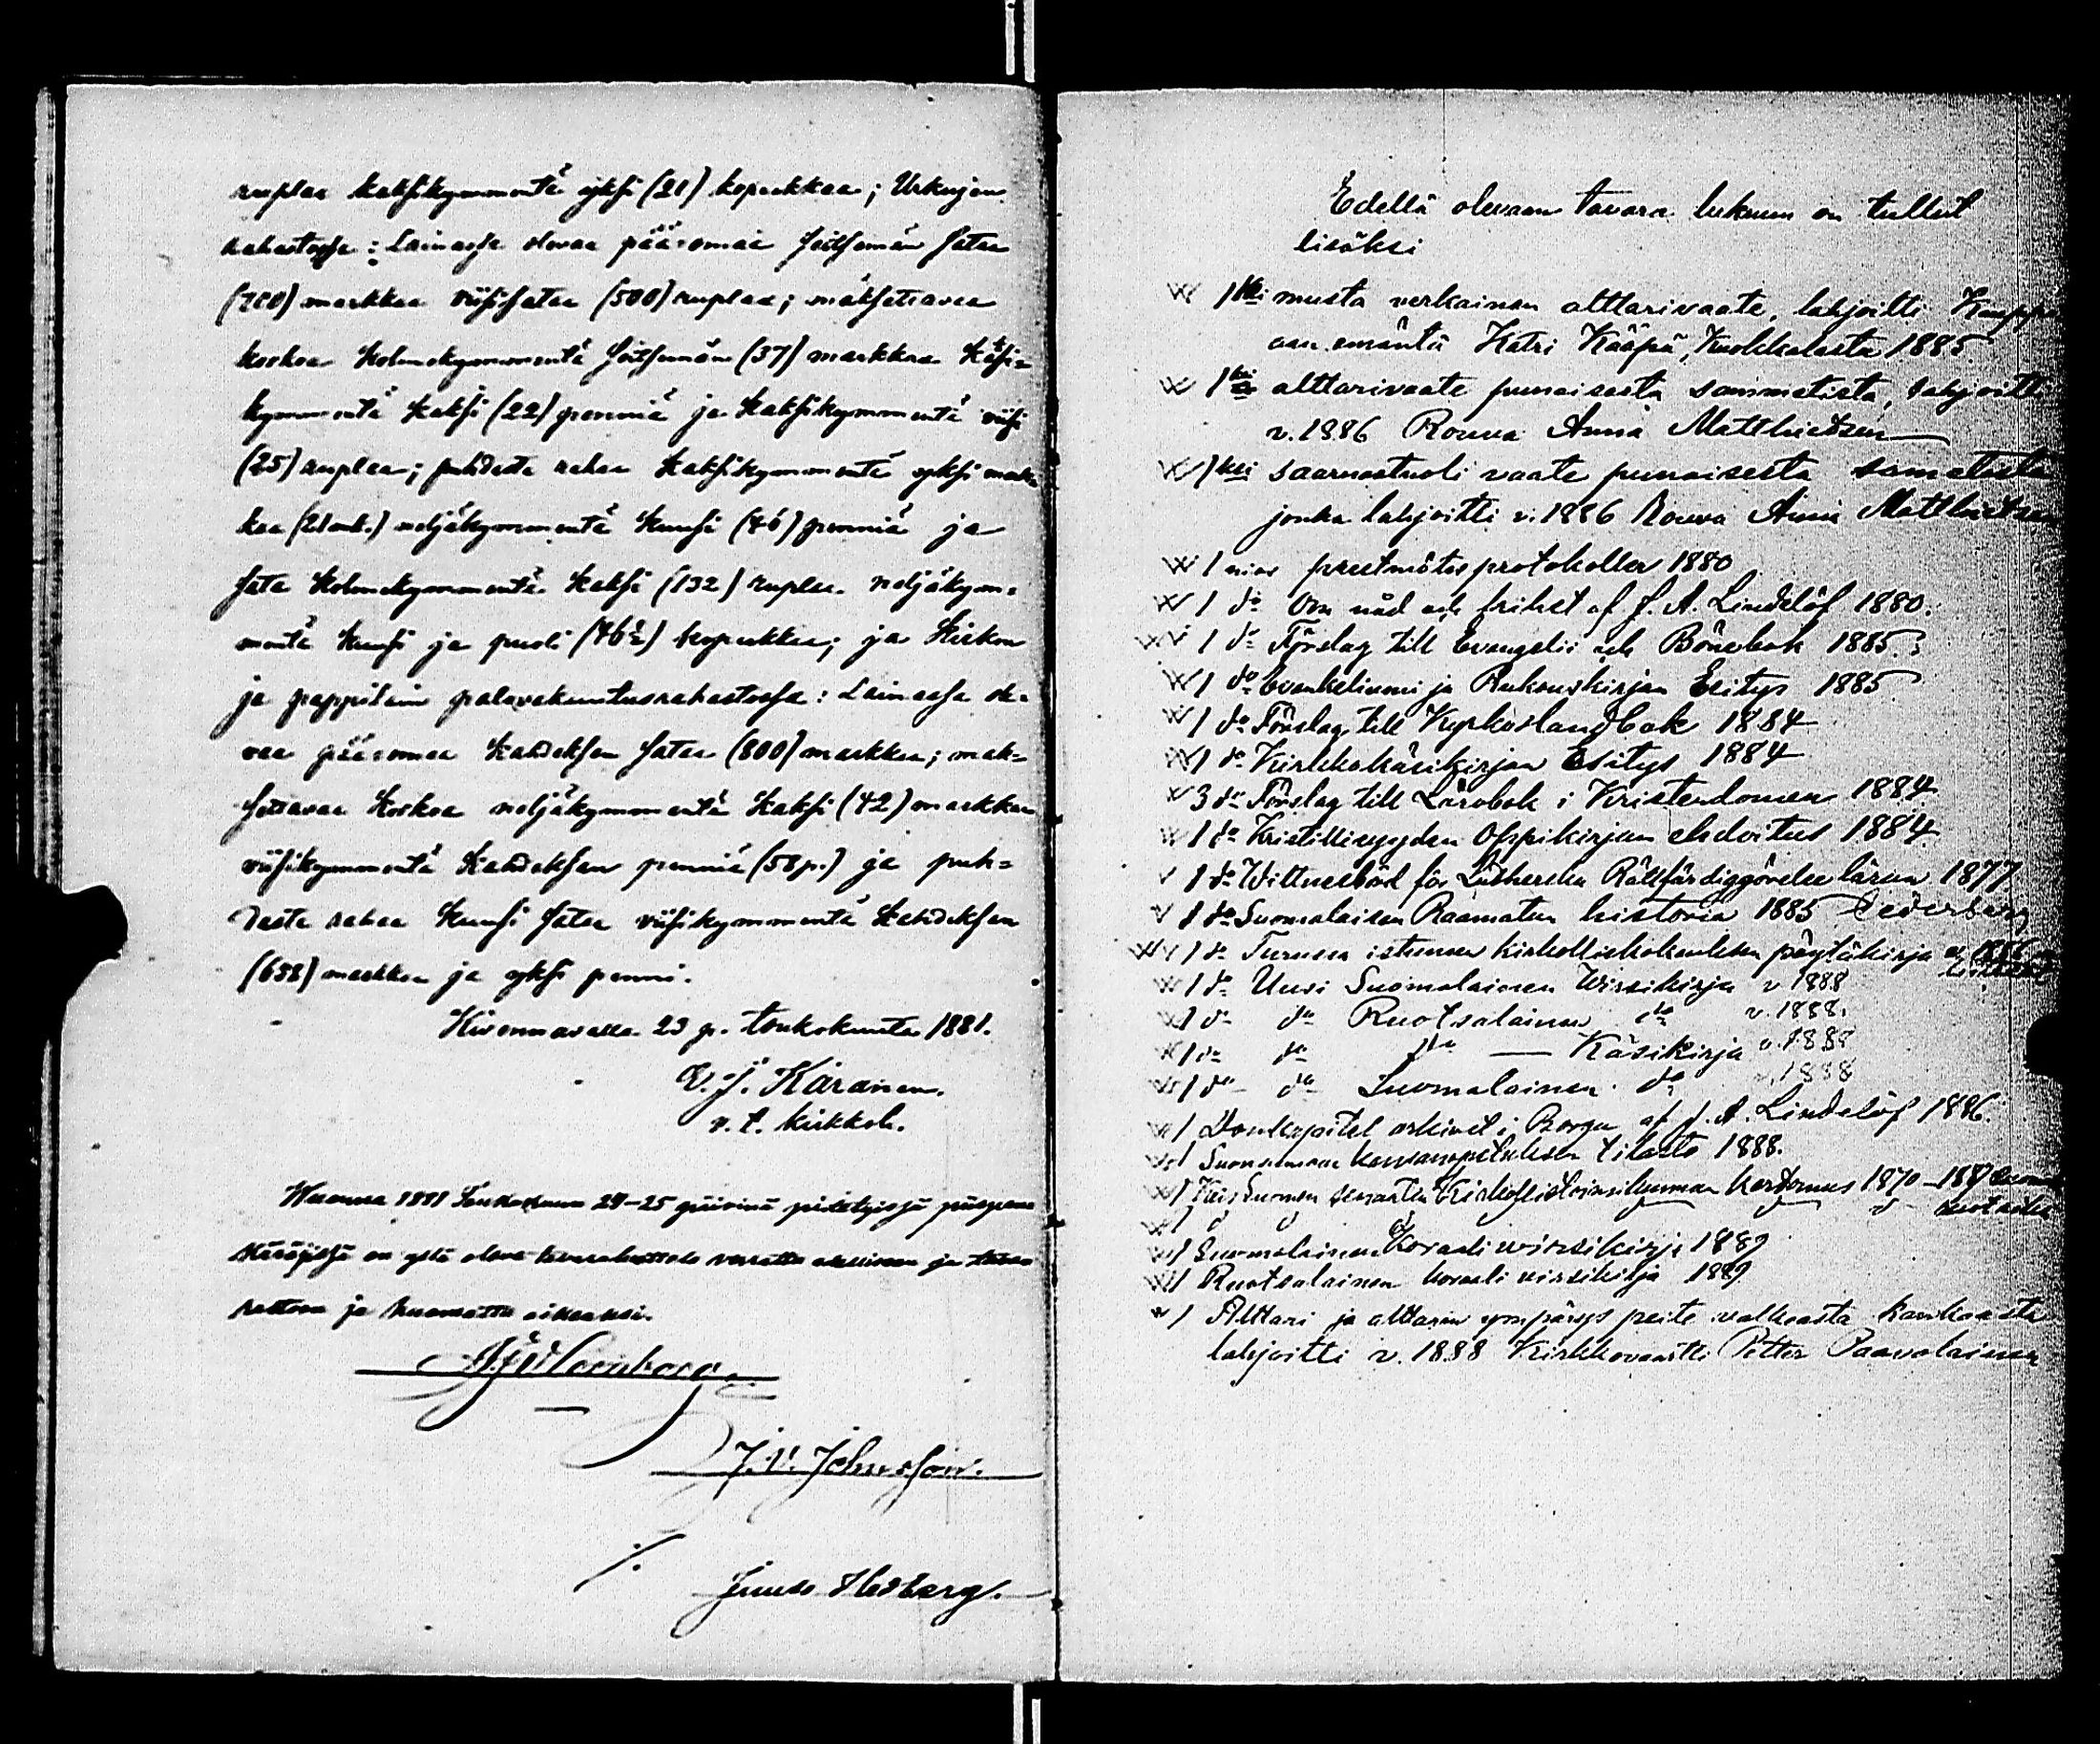 ruplaa kaksikymmentä yksi (21) kopeekkaa; Urkujen
rahastossa: Lainassa olevaa pääomaa seitsemän sataa
(700) markkaa viisisataa (500) ruplaa; maksettavaa
korkoa kolmekymmentä seitsemän (37) markkaa kaksi-
kymmentä kaksi (22) penniä ja kaksikymmentä viisi
(25) ruplaa; puhdasta rahaa kaksikymmentä yksi mark-
kaa (21 mk.) neljäkymmentä kuusi (46) penniä ja
sata kolmekymmentä kaksi (132) ruplaa neljäkym-
mentä kuusi ja puoli (46½) kopeekkaa; ja Kirkon
ja pappilain palovakuutusrahastossa: Lainassa ole-
vaa pääomaa kahdeksan sataa (800) markkaa; mak-
settavaa korkoa neljäkymmentä kaksi (42) markkaa
viisikymmentä kahdeksan penniä (58 p.) ja puh-
dasta rahaa kuusi sataa viisikymmentä kahdeksan
(658) markkaa ja yksi penni.
Kivennavalla 23 p. toukokuuta 1881.
J. Karanen.
v. t. kirkkoh.
Wuonna 1881 Toukokuun 24-25 päivinä pidetyissä piispan
käräjissä on yllä oleva
ja huomattu oikeaksi.
J. V. Johnsson.
./.
Juuso Hedberg.
Edellä olevaan tavara lukuun on tullut
lisäksi
1ksi musta verkainen alttarivaate, lahjoitti
emäntä Katri Kääpä, Kuokkalasta 1885.
1ksi alttarivaate punaisesta sammetista, lahjoitti
v. 1886 Rouva Anna Matthiesen
1ksi saarnastuoli vaate punaisesta sametista
jonka lahjoitti v. 1886 Rouva Anna Matthiesen
1 prestmötesprotokoller 1880
1 do Om nåd och frihet af J. A. Lindelöf 1880.
1 do Förslag till Evangelii och Bönebok 1885.
1 do Evankeliumi ja Rukouskirjan Esitys 1885
1 do Förslag till Kyrkohandbok 1884
1 do Kirkkokäsikirjan Esitys 1884
3 do Förslag till Lärobok i Kristendomen 1884
1 do Kristillisyyden Oppikirjan ehdoitus 1884.
1 do Wittnesbörd för Lutherska Rättfärdiggörelse läran 1877
1 do Suomalainen Raamatun historia 1885 Cederberg
1 do Turussa istuneen kirkolliskokouksen pöytäkirja
1 do Uusi Suomalainen Wirsikirja v 1888
1 do do Ruotsalainen do v. 1888.
1 do do do — Käsikirja v. 1888
1 do do Suomalainen do v. 1888
1 Domkapitel arkivet i Borga af J. A. Lindelöf 1886.
1 Suomenmaan kansanopetuksen tilasto 1888.
1 Keis Suomen senaatin Kirkollistoimikunnan kertomus 1870-
1
1 Suomalainen Koraali wirsikirja 1889
1 Ruotsalainen koraali virsikirja 1889
1 Alttari ja alttarin ympärys peite valkeasta kankaasta
lahjoitti v. 1888 Kirkkovaartti Petter Paavolainen